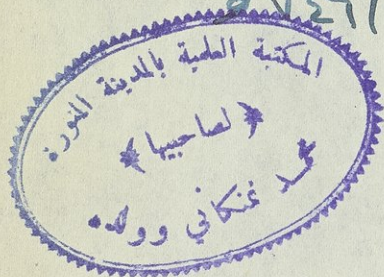 المكتبة العلمية بالمدينة المنورة
﴿لصاحبيها﴾
محمد نمنكاني وولده